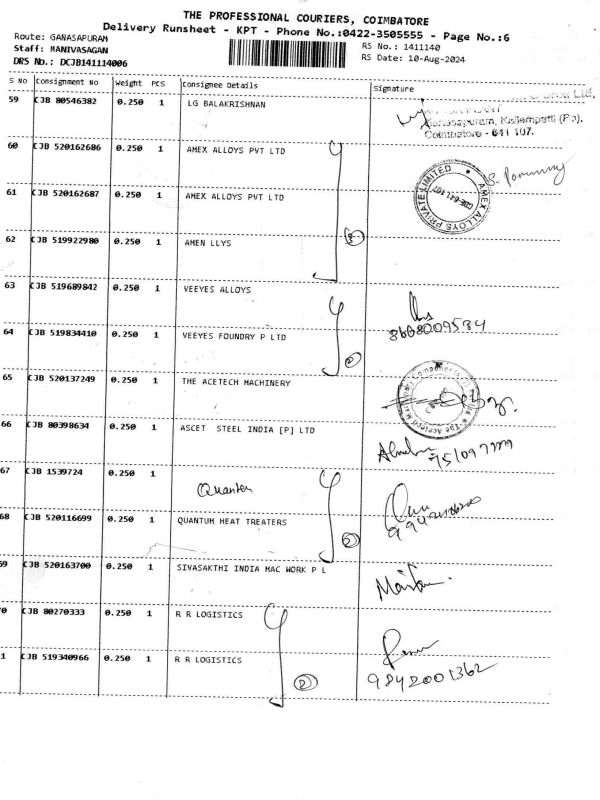 THE PROFESSIONAL COURIERS, COIMBATORE
Delivery Runsheet - KPT - Phone No.:0422-3505555 - Page No.:6
Route: GANASAPURAM
Staff: MANIVASAGAN
DRS No.: DCJB141114006
RS No.: 1411140
RS Date: 10-Aug-2024
S No Consignment No Weight PCS Consignee Details Signature
59 CJB 80546382 0.250 1 LG BALAKRISHNAN
Ganasapuram, Kallampatti (Po),
Coimbatore - 641 107.
60 CJB 520162686 0.250 1 AMEX ALLOYS PVT LTD
AMEX ALLOYS PRIVATE LIMITED
CBE-641 107
61 CJB 520162687 0.250 1 AMEX ALLOYS PVT LTD
62 CJB 519922980 0.250 1 AMEN LLYS
3
63 CJB 519689842 0.250 1 VEEYES ALLOYS
8668009534
64 CJB 519834410 0.250 1 VEEYES FOUNDRY P LTD
2
65 CJB 520137249 0.250 1 THE ACETECH MACHINERY
66 CJB 80398634 0.250 1 ASCET STEEL INDIA [P] LTD
67 CJB 1539724 0.250 1
Quantum
68 CJB 520116699 0.250 1 QUANTUM HEAT TREATERS
2
69 CJB 520163700 0.250 1 SIVASAKTHI INDIA MAC WORK P L
0 CJB 80270333 0.250 1 R R LOGISTICS
1 CJB 519340966 0.250 1 R R LOGISTICS
2
9842001362